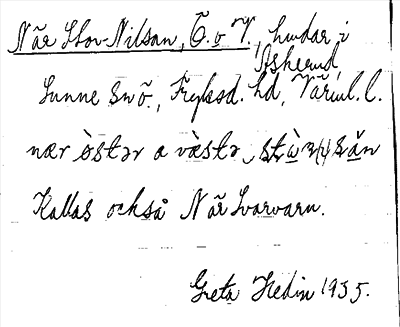 När Stor-Nilsan, Ö. o V., hmdar, i
Åsherud,
Sunne snö., Fryksd. hd, Värml. l.
nær òstər o vèstə,
Kallas också När Svarvarn.
Greta Hedin 1935.